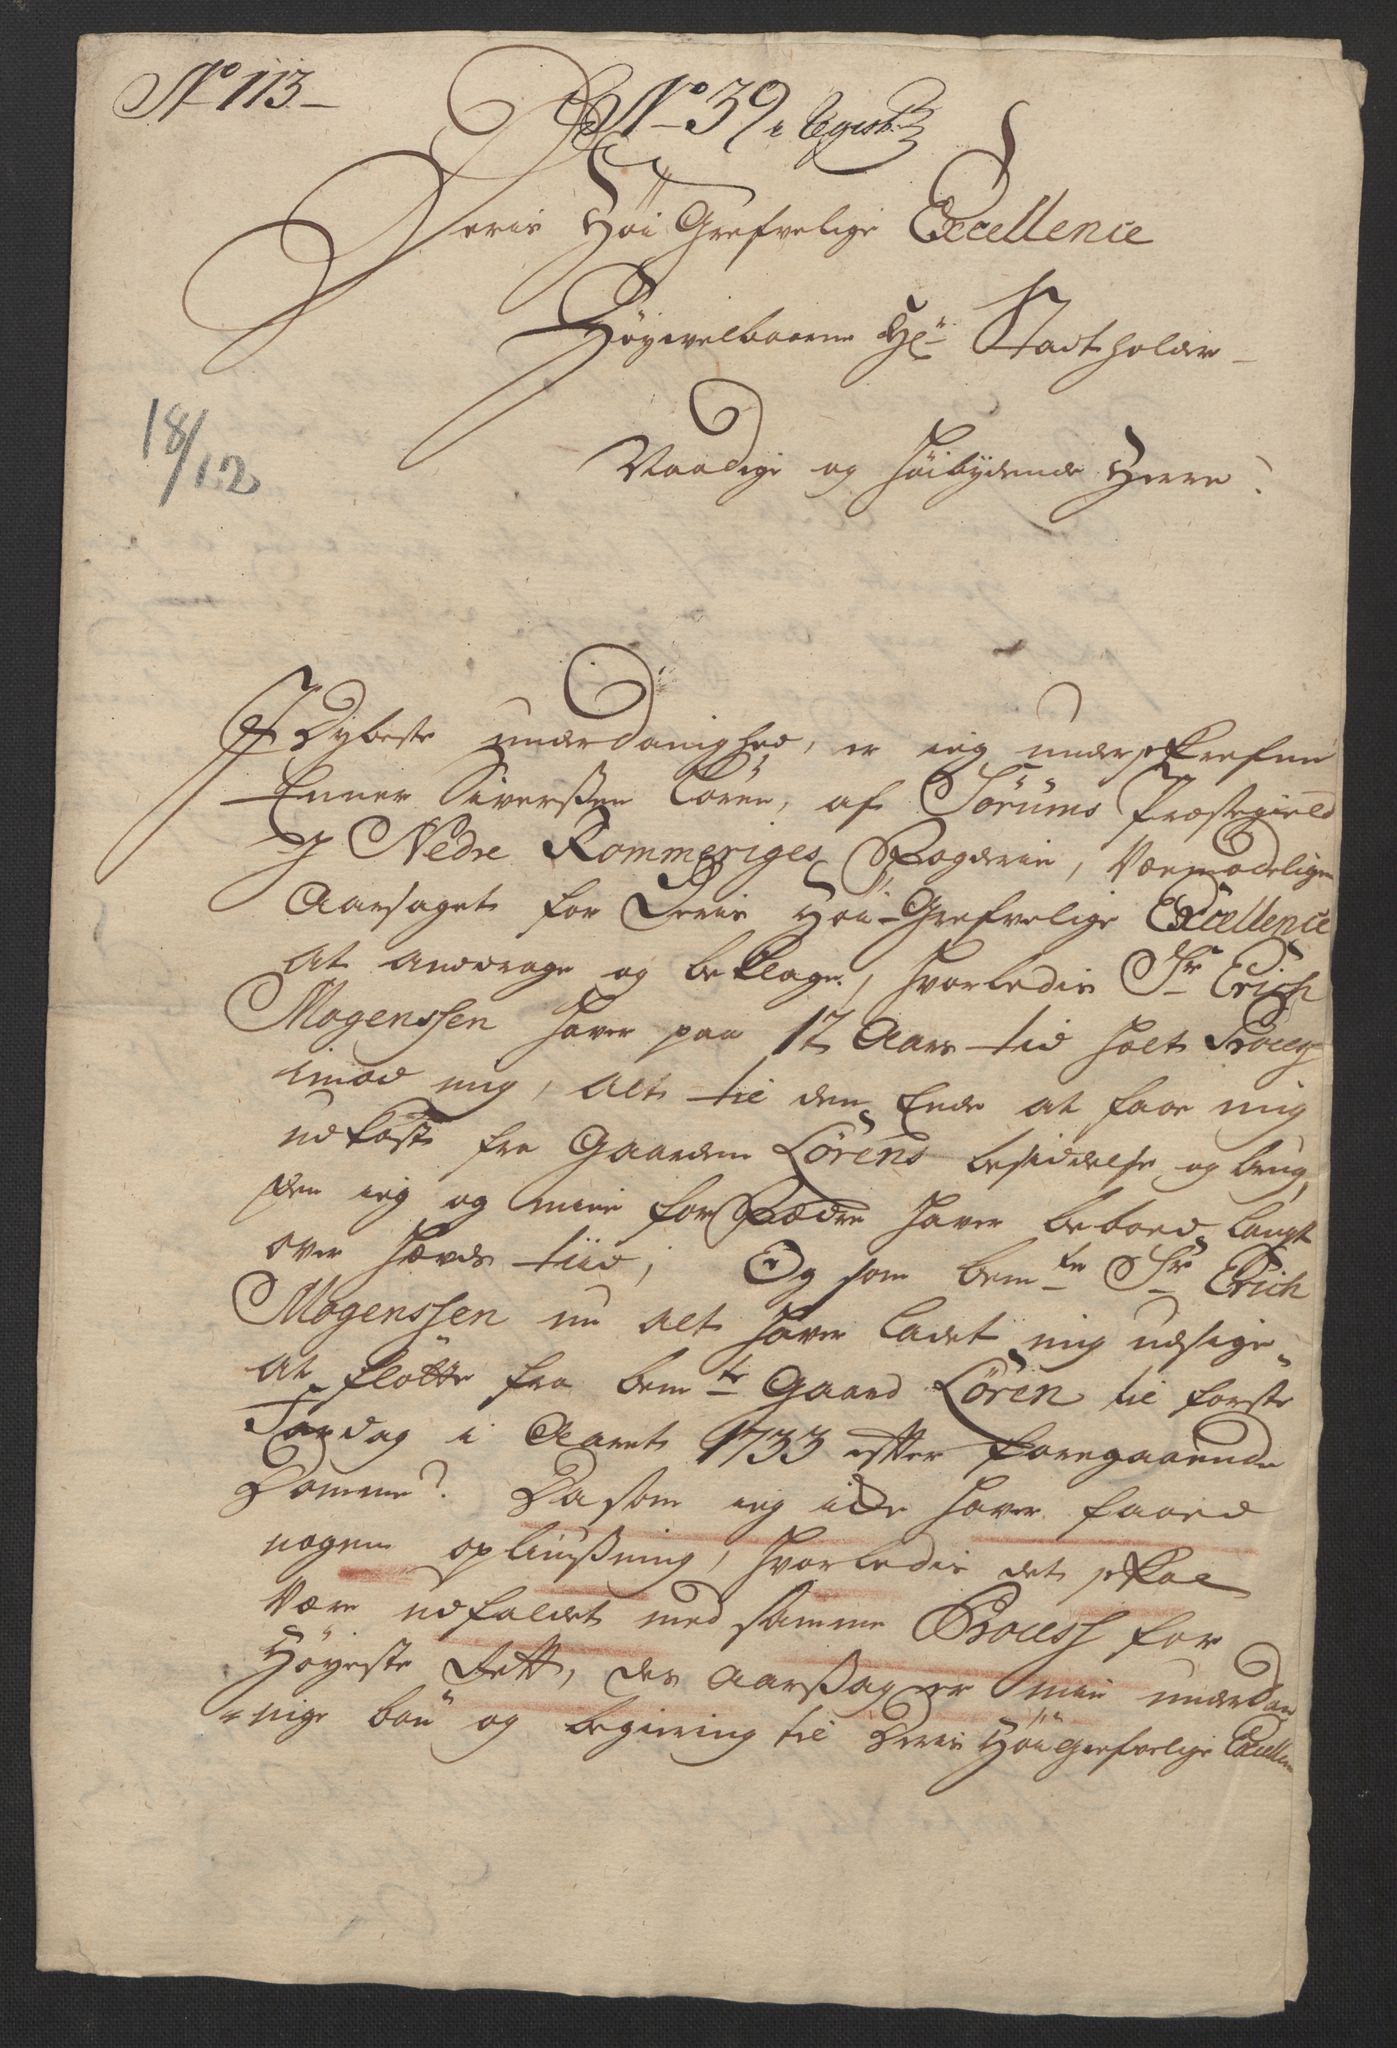 No 113
No 39 i
Deris Höi Grefvelige Excellence
Höyvelbaarne Hr. Stadtholder
Naadige og Höibydende Herre!
18/12
I Dybeste underdanighed, er ieg underskrefne
Enner Siverssen Lören, af Sörums Præstegield
J Nedre Rommeriges Fogderie, Vemodeligen
Aarsaget for Deris Höi-Grefvelige Excellence
at andrage og beklage, hvorledis Sr Erich
Mogenssen haver paa 12 Aars tid holt Process
imod mig, alt til den Ende at faae mig
udkast fra Gaarden Lörens besiddelse og brug,
den ieg og mine forfædre haver beboed langt
over hævds tiid, Og som bemte Sr Erich
Mogenssen nu alt haver ladet mig udsige
at flötte fra bemte Gaard Lören til förste
Fardag i Aaret 1733 efter foregaaende
Domme? Da som ieg icke haver faaed
nogen opliussning, hvorledis det skal
være udfaldet med samme Process for
Höyeste Rett, des Aarssag er min underdan
nige bön og begiering til Deris Höi Grefvelige Excellen